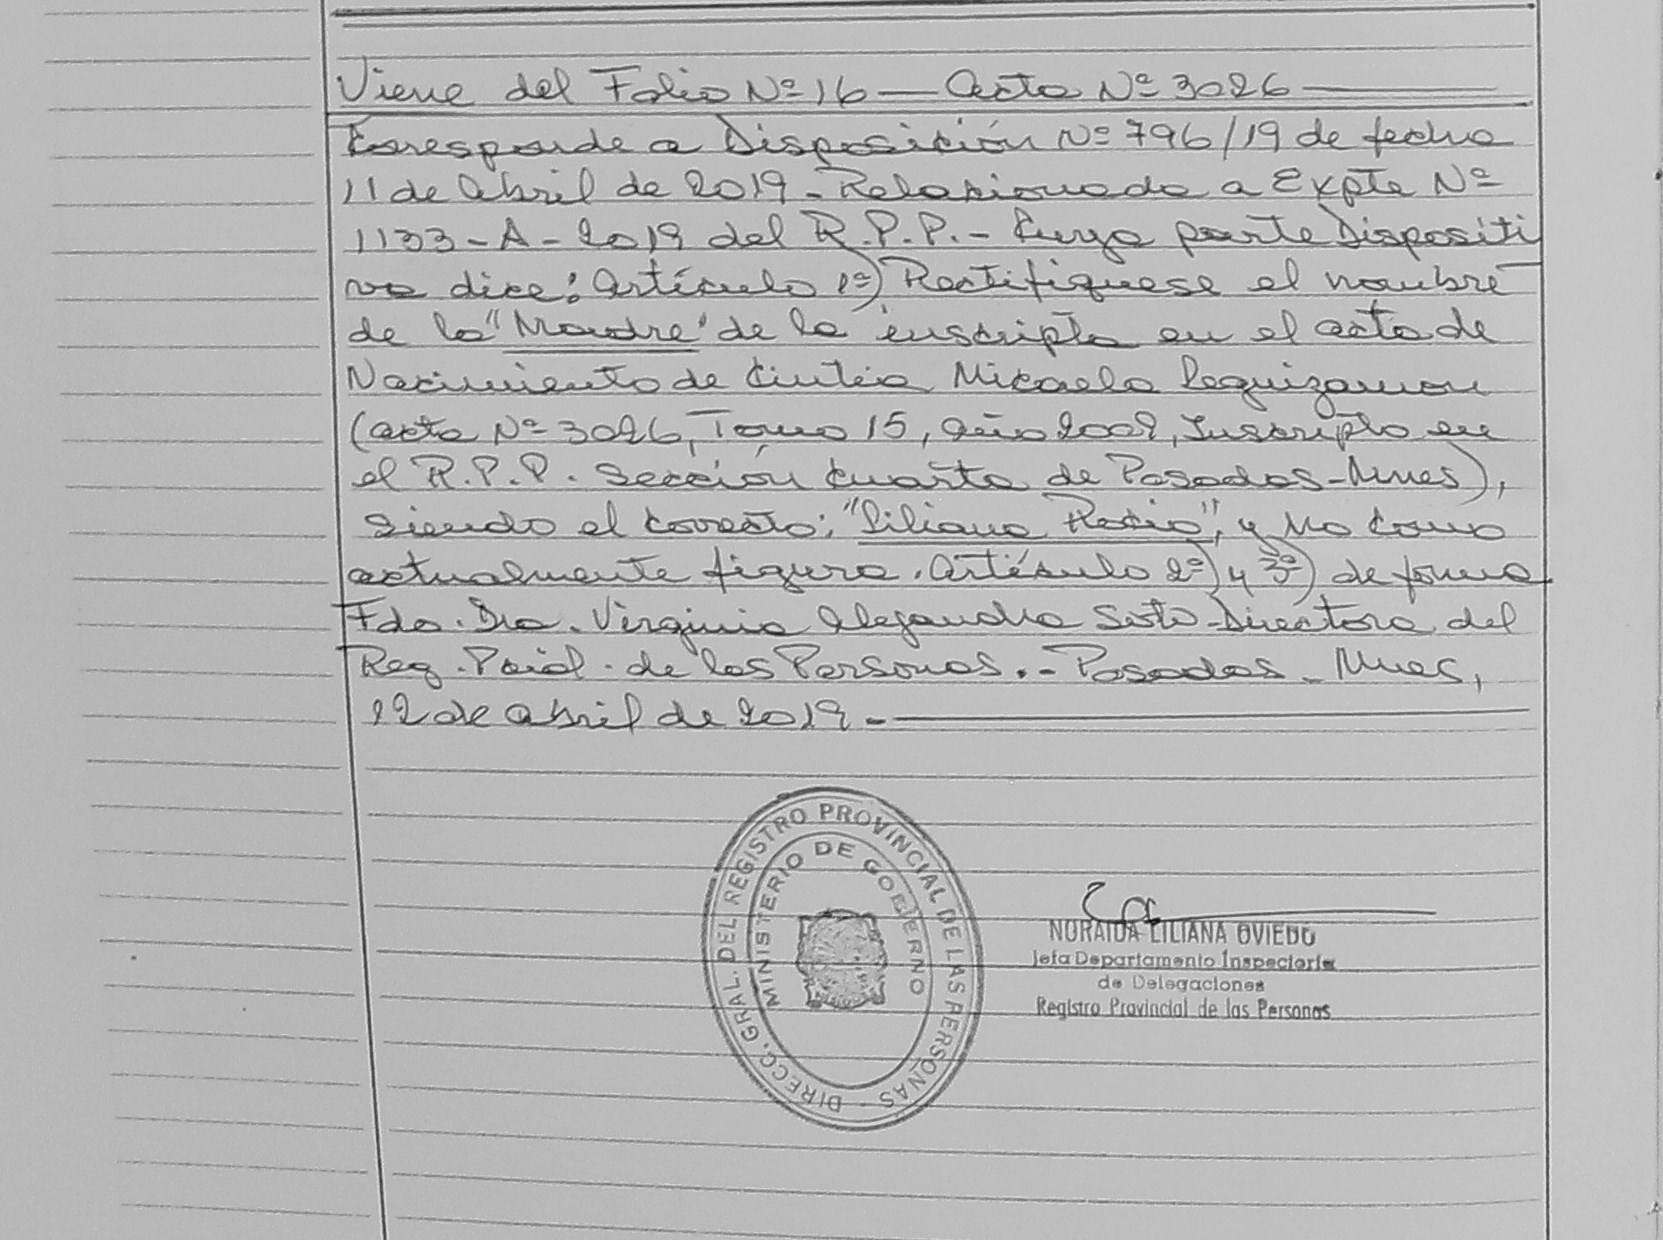 Viene del Folio Nº 16 — Acta Nº 3026 —
Corresponde a Disposición Nº 796/19 de fecha
11 de Abril de 2019 - Relacionada a Expte Nº
1133 - A - 2019 del R.P.P. - Cuya parte Dispositi
va dice: Artículo 1º) Rectifíquese el nombre
de la "Madre" de la inscripta en el acta de
Nacimiento de Cintia Micaela Leguizamon
(acta Nº 3026, Tomo 15, año 2002, Inscripta en
el R.P.P. Sección Cuarta de Posadas - Mnes),
siendo el correcto: "Liliana Rocio", y no como
actualmente figura. Artículo 2º) y 3º) de forma
Fdo. Dra. Virginia Alejandra Soto - Directora del
Reg. Pcial. de las Personas. - Posadas - Mnes,
22 de abril de 2019 -
DIRECC. GRAL. DEL REGISTRO PROVINCIAL DE LAS PERSONAS -
MINISTERIO DE GOBIERNO
NORAIDA LILIANA OVIEDO
Jefa Departamento Inspectoría
de Delegaciones
Registro Provincial de las Personas